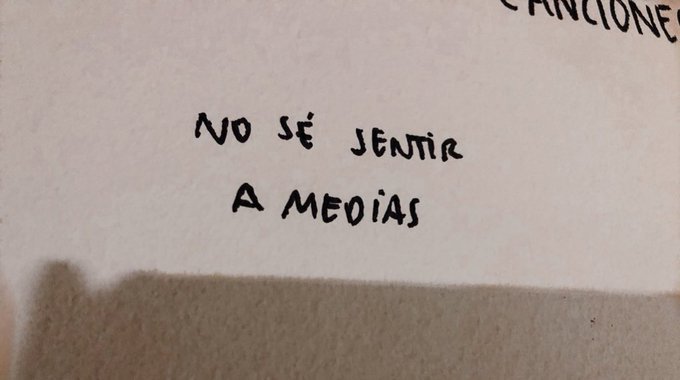 CANCIONES
NO SÉ SENTIR
A MEDIAS